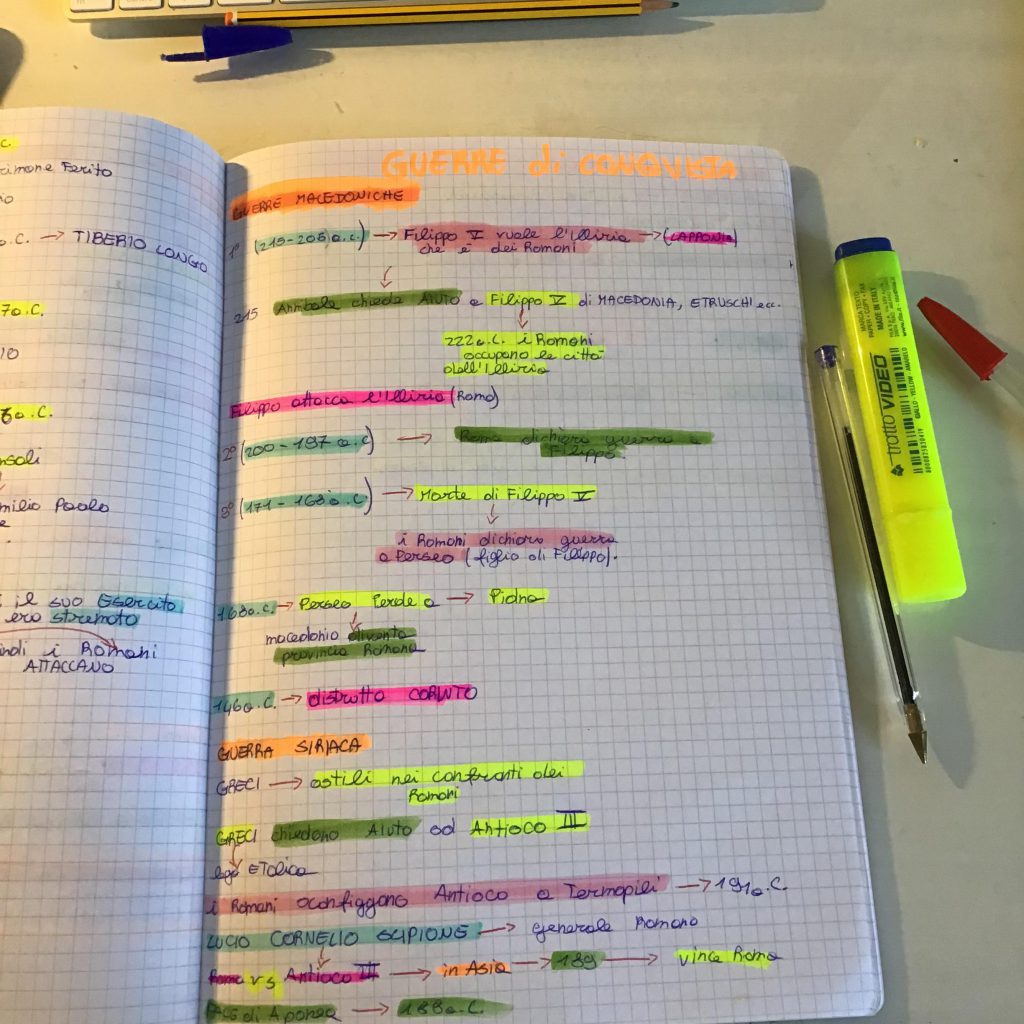 c.
rimone Ferito
io
o.C. → TIBERIO LONGO
7 a.C.
IO
6 a.C.
nsoli
milio Paolo
e
i il suo Esercito
era stremato
indi i Romani
ATTACCANO
GUERRE di CONQUISTA
GUERRE MACEDONICHE
1° (215-205 a.C) → Filippo V vuole l'Illiria → (LAPPONIA)
che è dei Romani
215 Annibale chiede Aiuto a Filippo V di MACEDONIA, ETRUSCHI ecc.
222 a.C. i Romani
occupano le città
dell'Illiria
Filippo attacca l'Illiria (Roma)
2° (200-197 a.C) → Roma dichiara guerra a
Filippo.
3° (171-168 a.C) → Morte di Filippo V
i Romani dichiara guerra
a Perseo (figlio di Filippo).
168 a.C. → Perseo Perde a → Pidna
macedonia diventa
provincia Romana
146 a.C. → distrutta CORINTO
GUERRA SIRIACA
GRECI → ostili nei confronti dei
Romani
GRECI chiedono Aiuto ad Antioco III
lega ETolica
i Romani sconfiggono Antioco a Termopili → 191 a.C.
LUCIO CORNELIO SCIPIONE → generale Romano
Roma vs Antioco III → in Asia → 189 → vince Roma
PACE di Apamea → 188 a.C.
tratto VIDEO
MARCA TESTO
PAPER • COPY • FAX
MADE IN ITALY
GIALLO - YELLOW